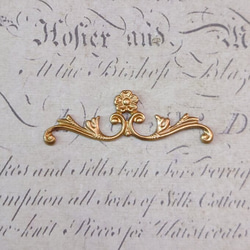 Hosier and M
At the Bishop Blai
kes and Sells both For Foreig
mption all Sorts of Silk Cotton
re-knit Pieces for Waistcoats